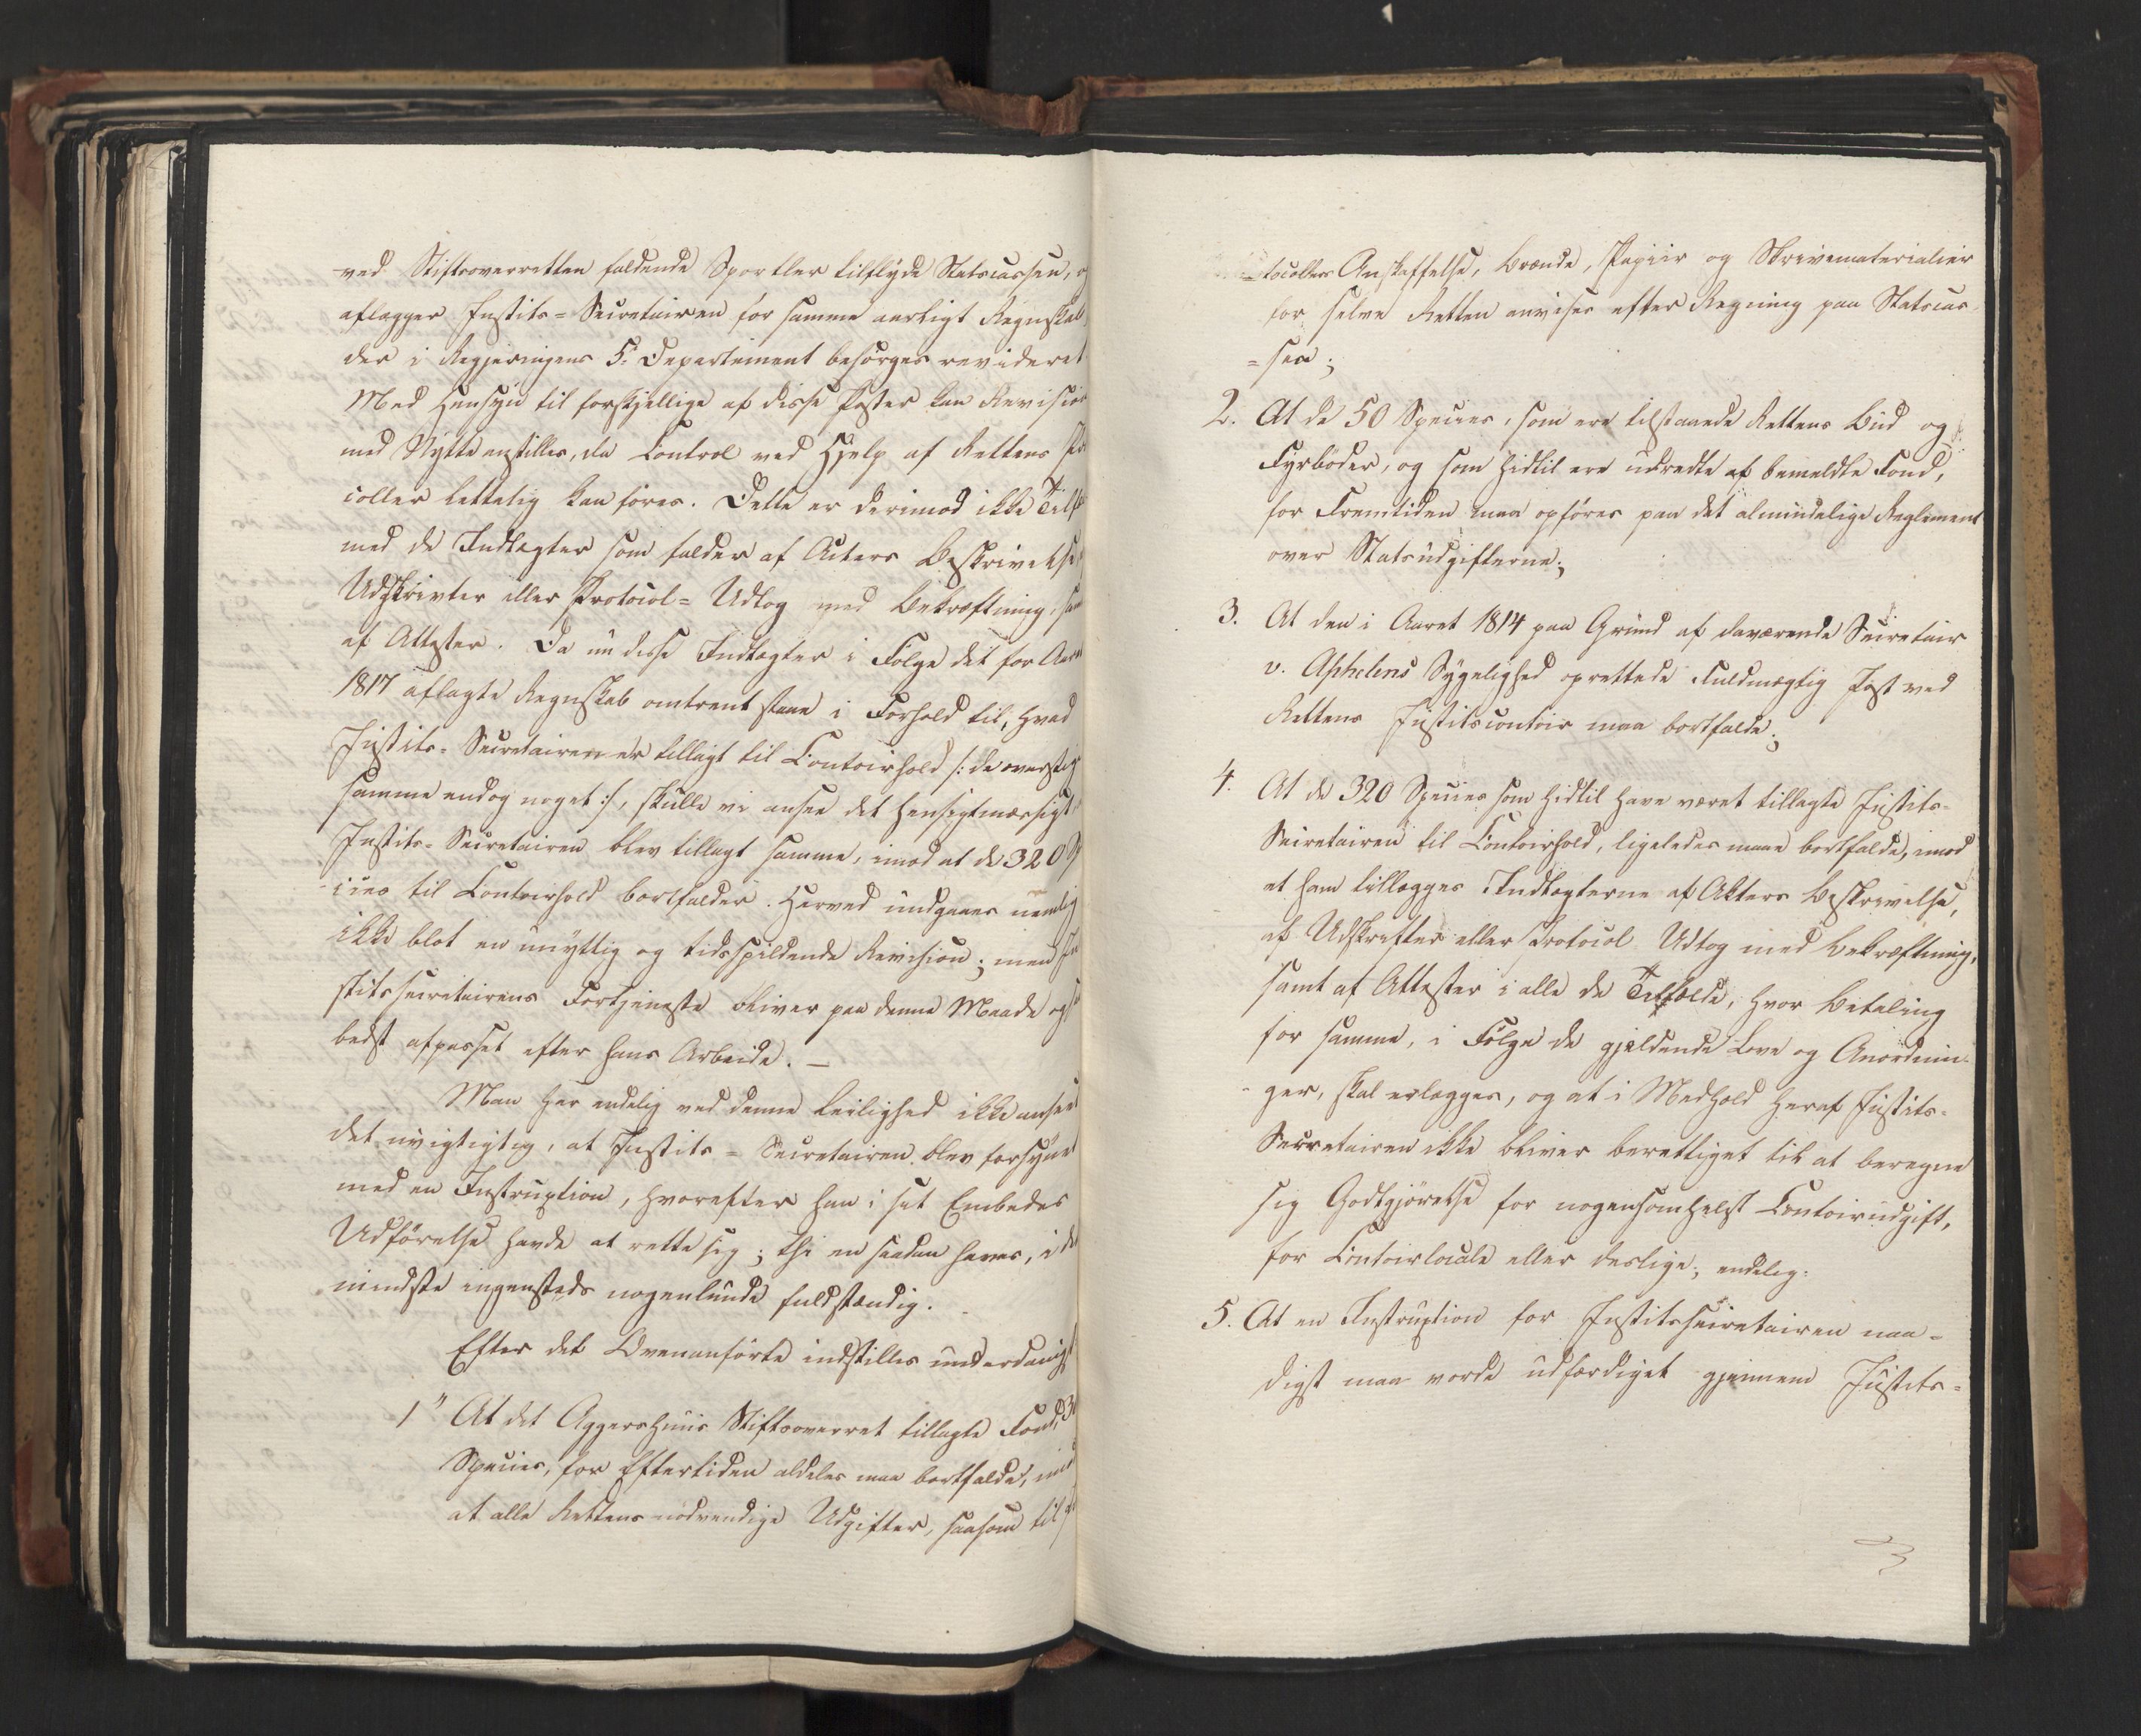 ved Stiftsoverretten faldende Sportler tilflyde Statscassen, og
aflægger Justits-Secretairen for samme aarligt Regnskab,
der i Regjeringens 5. Departement besörges revideret
Med Hensyn til forskjellige af disse Poster kan Revision
med Nytte anstilles, da Control ved Hjelp af Rettens Pro
coller lettelig kan föres. Dette er derimod ikke Tilf
med de Indtægter som falder af Acters Beskrivelse
Udskrivter eller Protocol-Udtog med Bekræftning, sam
af Attester. Da nu disse Indtægter i Følge det for Aaret
1817 aflagte Regnskab omtrent staae i Forhold til, hvad
Justits-Secretairen er tillagt til Contoirhold /: de overstig
samme endog noget :/, skulle vi ansee det hensigtmæssigt
Justits-Secretairen blev tillagt samme, imod at de 320 Sp
cies til Contoirhold bortfalder. Herved undgaaes nemlig
ikke blot en unyttig og tidsspildende Revision; men Ju
stitssecretairens Fortjeneste bliver paa denne Maade ogs
bedst afpasset efter hans Arbeide. —
Man har endelig ved denne Leilighed ikke anseet
det uvigtigtig, at Justits-Secretairen blev forsynet
med en Instruction, hvorefter han i sit Embedes
Udførelse havde at rette sig; thi en saadan haves, i det
mindste ingensteds nogenlunde fuldstændig.
Efter det Ovenanførte indstilles underdanigst
1" At det Aggershuus Stiftsoverret tillagte Fond, 30
Species, for Eftertiden aldeles maa bortfalde, imod
at alle Rettens nødvendige Udgifter, saasom til P
=tocollers Anskaffelse, Brænde, Papiir og Skrivematerialier
for selve Retten anvises efter Regning paa Statscas-
=sen;
2. At de 50 Species, som ere tilstaaede Rettens Bud og
Fyrböder, og som hidtil ere udredte af bemeldte Fond,
for Fremtiden maa opføres paa det almindelige Reglement
over Statsudgifterne;
3. At den i Aaret 1814 paa Grund af daværende Secretair
v. Aphelens Sygelighed oprettede Fuldmægtig Post ved
Rettens Justitscontoir maa bortfalde;
4. At de 320 Species som hidtil have været tillagte Justits-
Secretairen til Contoirhold, ligeledes maae bortfalde, imod
at ham tillægges Indtægterne af Akters Beskrivelse,
af Udskrifter eller Protocol Udtog med Bekræftning,
samt af Attester i alle de Tilfælde, hvor Betaling
for samme, i Følge de gjeldende Love og Anordnin-
-ger, skal erlægges, og at i Medhold heraf Justits-
Secretairen ikke bliver berettiget til at beregne
sig Godtgjörelse for nogensomhelst Contoirudgift,
for Contoirlocale eller deslige; endelig:
5. At en Instruction for Justitssecretairen naa-
digst maa vorde udfærdiget gjennem Justits-